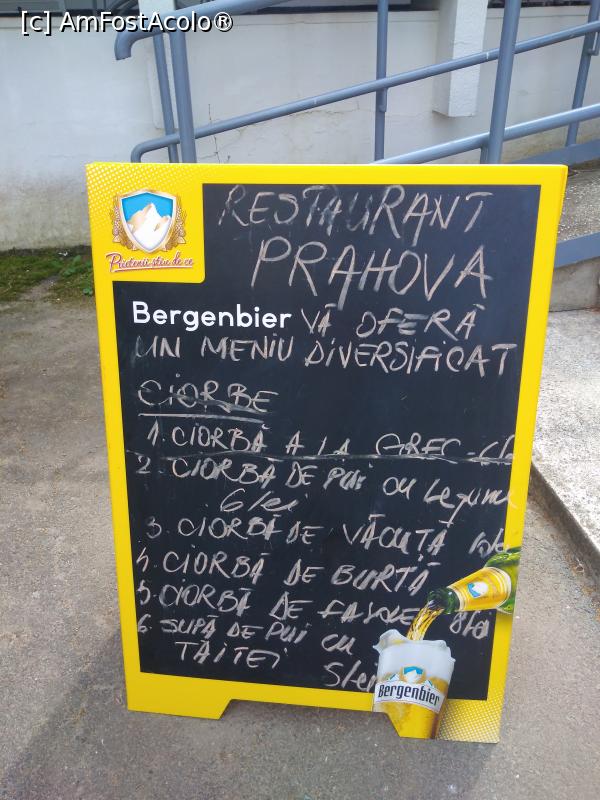 [c] AmFostAcolo®
RESTAURANT
PRAHOVA
Prietenii știu de ce
Bergenbier VĂ OFERĂ
UN MENIU DIVERSIFICAT
CIORBE
1. CIORBĂ A LA GREC
2. CIORBĂ DE PUI CU Legume
6 lei
3. CIORBĂ DE VĂCUȚĂ
4. CIORBĂ DE BURTĂ
5. CIORBĂ DE FASOLE 8 lei
6. SUPĂ DE PUI CU
TĂIȚEI 5 lei
Bergenbier